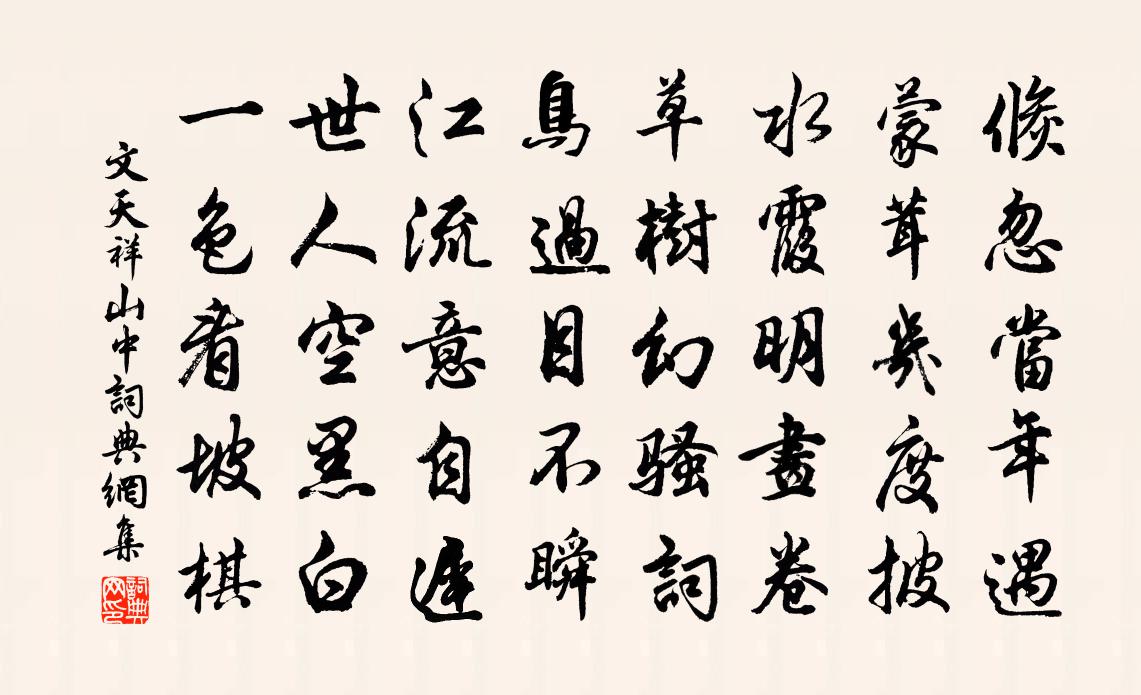 倐忽當年遇
蒙茸幾度披
水霞明畫卷
草樹幻騷詞
鳥過目不瞬
江流意自遲
世人空黑白
一色看坡棋
文天祥山中詞典網集
詞典網印